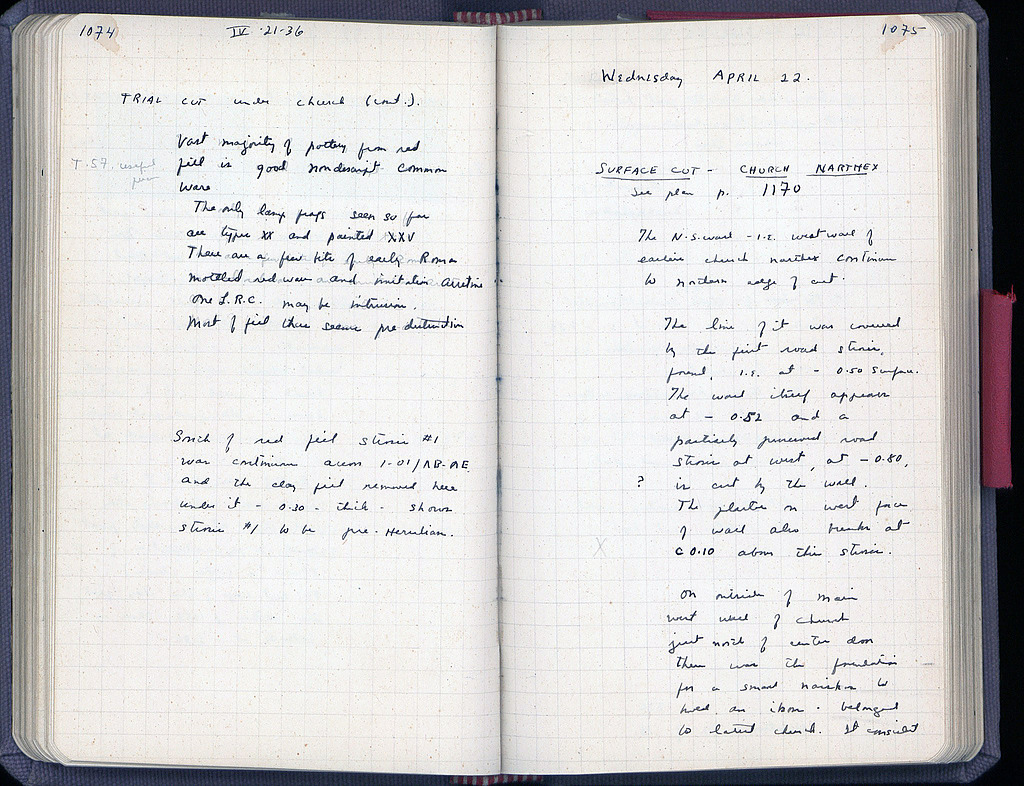 1074
IV ·21-36
TRIAL cut under church (cont.).
Vast majority of pottery from red
fill is good nondescript common
ware
T.57. useful
The only lamp frags seen so far
are types XX and painted XXV
There are a few bits of early Roman
mottled red ware and imitation arretine
One L.R.C. may be intrusion.
Most of fill thus seems pre-destruction
South of red fill stosis #1
was continuous across 1-01/AB-AE
and the clay fill removed here
under it - 0.30 - thick - shows
stosis #1 to be pre-Herulian.
1075
Wednesday APRIL 22.
SURFACE CUT - CHURCH NARTHEX
See plan p. 1170
The N-S wall - i.e. west wall of
earlier church narthex continues
to northern edge of cut.
The line of it was covered
by the first road stosis,
found, i.e. at - 0.50 surface.
The wall itself appears
at - 0.52 and a
partially preserved road
stosis at west, at - 0.80,
? is cut by the wall.
The plaster on west face
of wall also breaks at
c 0.10 above this stosis.
X
On outside of main
west wall of church
just north of center door
there was the foundation
for a small to
hold an ikon - belonged
to latest church. It consists